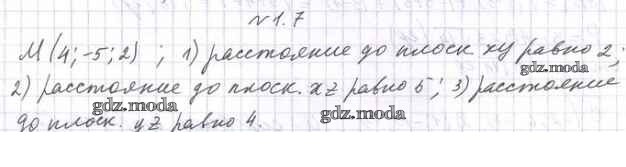 № 1.7
М (4; -5; 2) ; 1) расстояние до плоск xy равно 2;
2) расстояние до плоск. xz равно 5; 3) расстояние
gdz.moda
gdz.moda
до плоск. yz равно 4.
gdz.moda